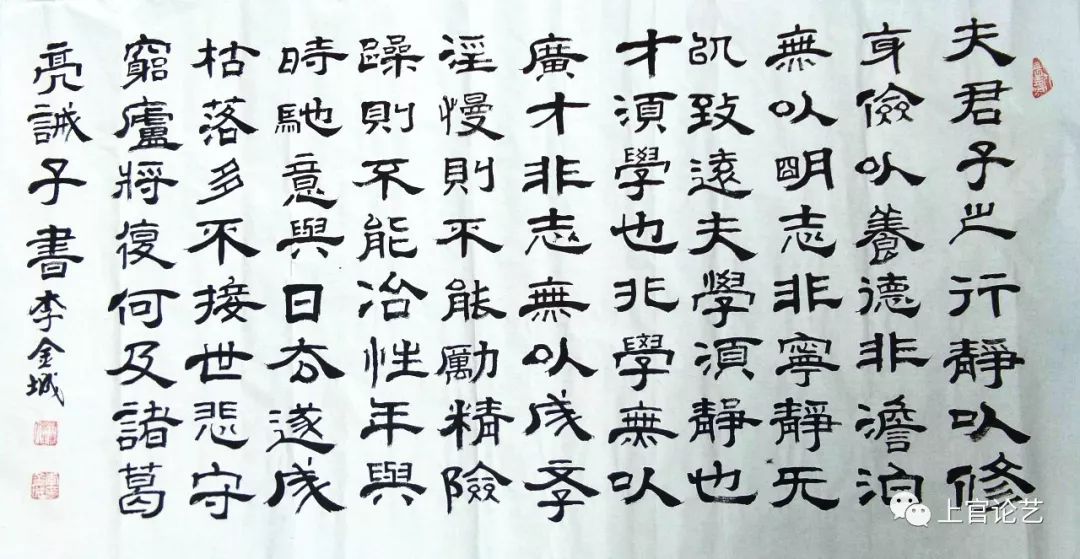 夫君子之行靜以修
身儉以養德非澹泊
無以明志非寧靜无
以致遠夫學須靜也
才須學也非學無以
廣才非志無以成斈
淫慢則不能勵精險
躁則不能冶性年與
時馳意與日去遂成
枯落多不接世悲守
窮廬將復何及諸葛
亮誡子書 李金城
上官论艺